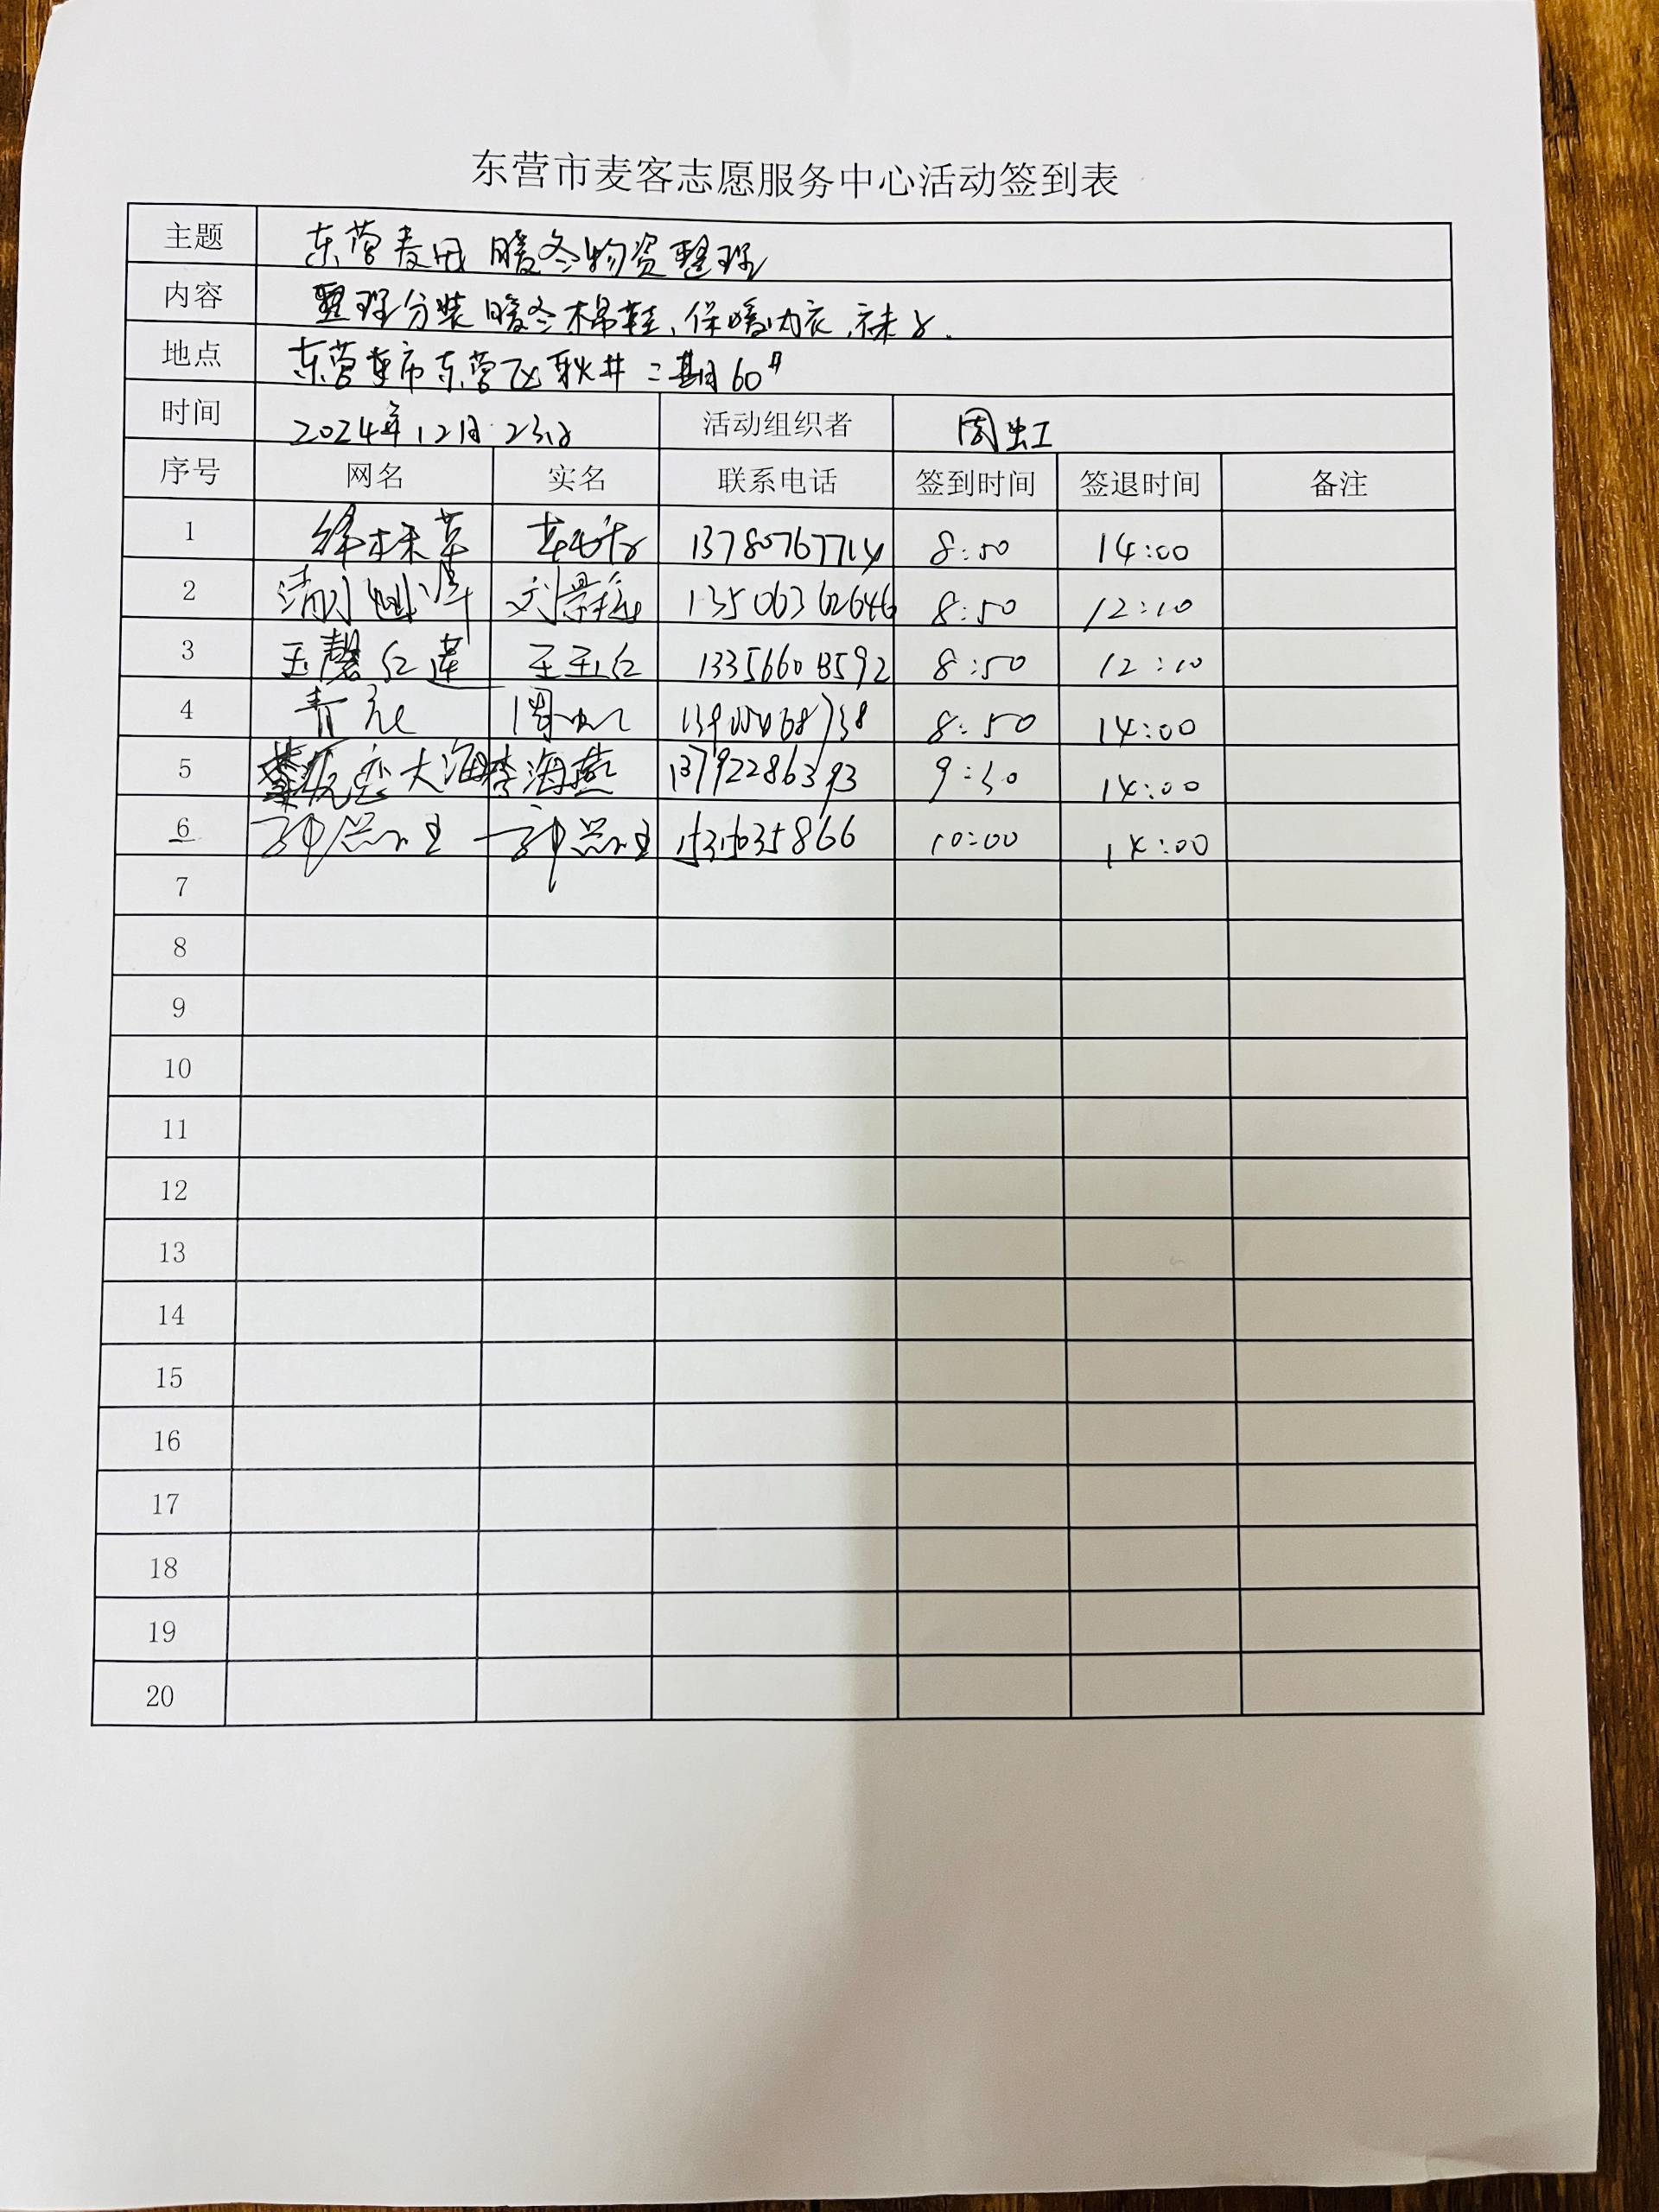 东营市麦客志愿服务中心活动签到表
主题 东营麦田 暖冬物资整理
内容 整理分装暖冬棉鞋、保暖内衣、袜子.
地点 东营市东营区 二期60#
时间 2024年12月23日 活动组织者 周虹
序号 网名 实名 联系电话 签到时间 签退时间 备注
1 13780767714 8:50 14:00
2 刘景 13506362646 8:50 12:10
3 玉馨红莲 王玉红 13356608592 8:50 12:10
4 周虹 8:50 14:00
5 恋大海 李海燕 13792286393 9:30 14:00
6 10:00 14:00
7
8
9
10
11
12
13
14
15
16
17
18
19
20